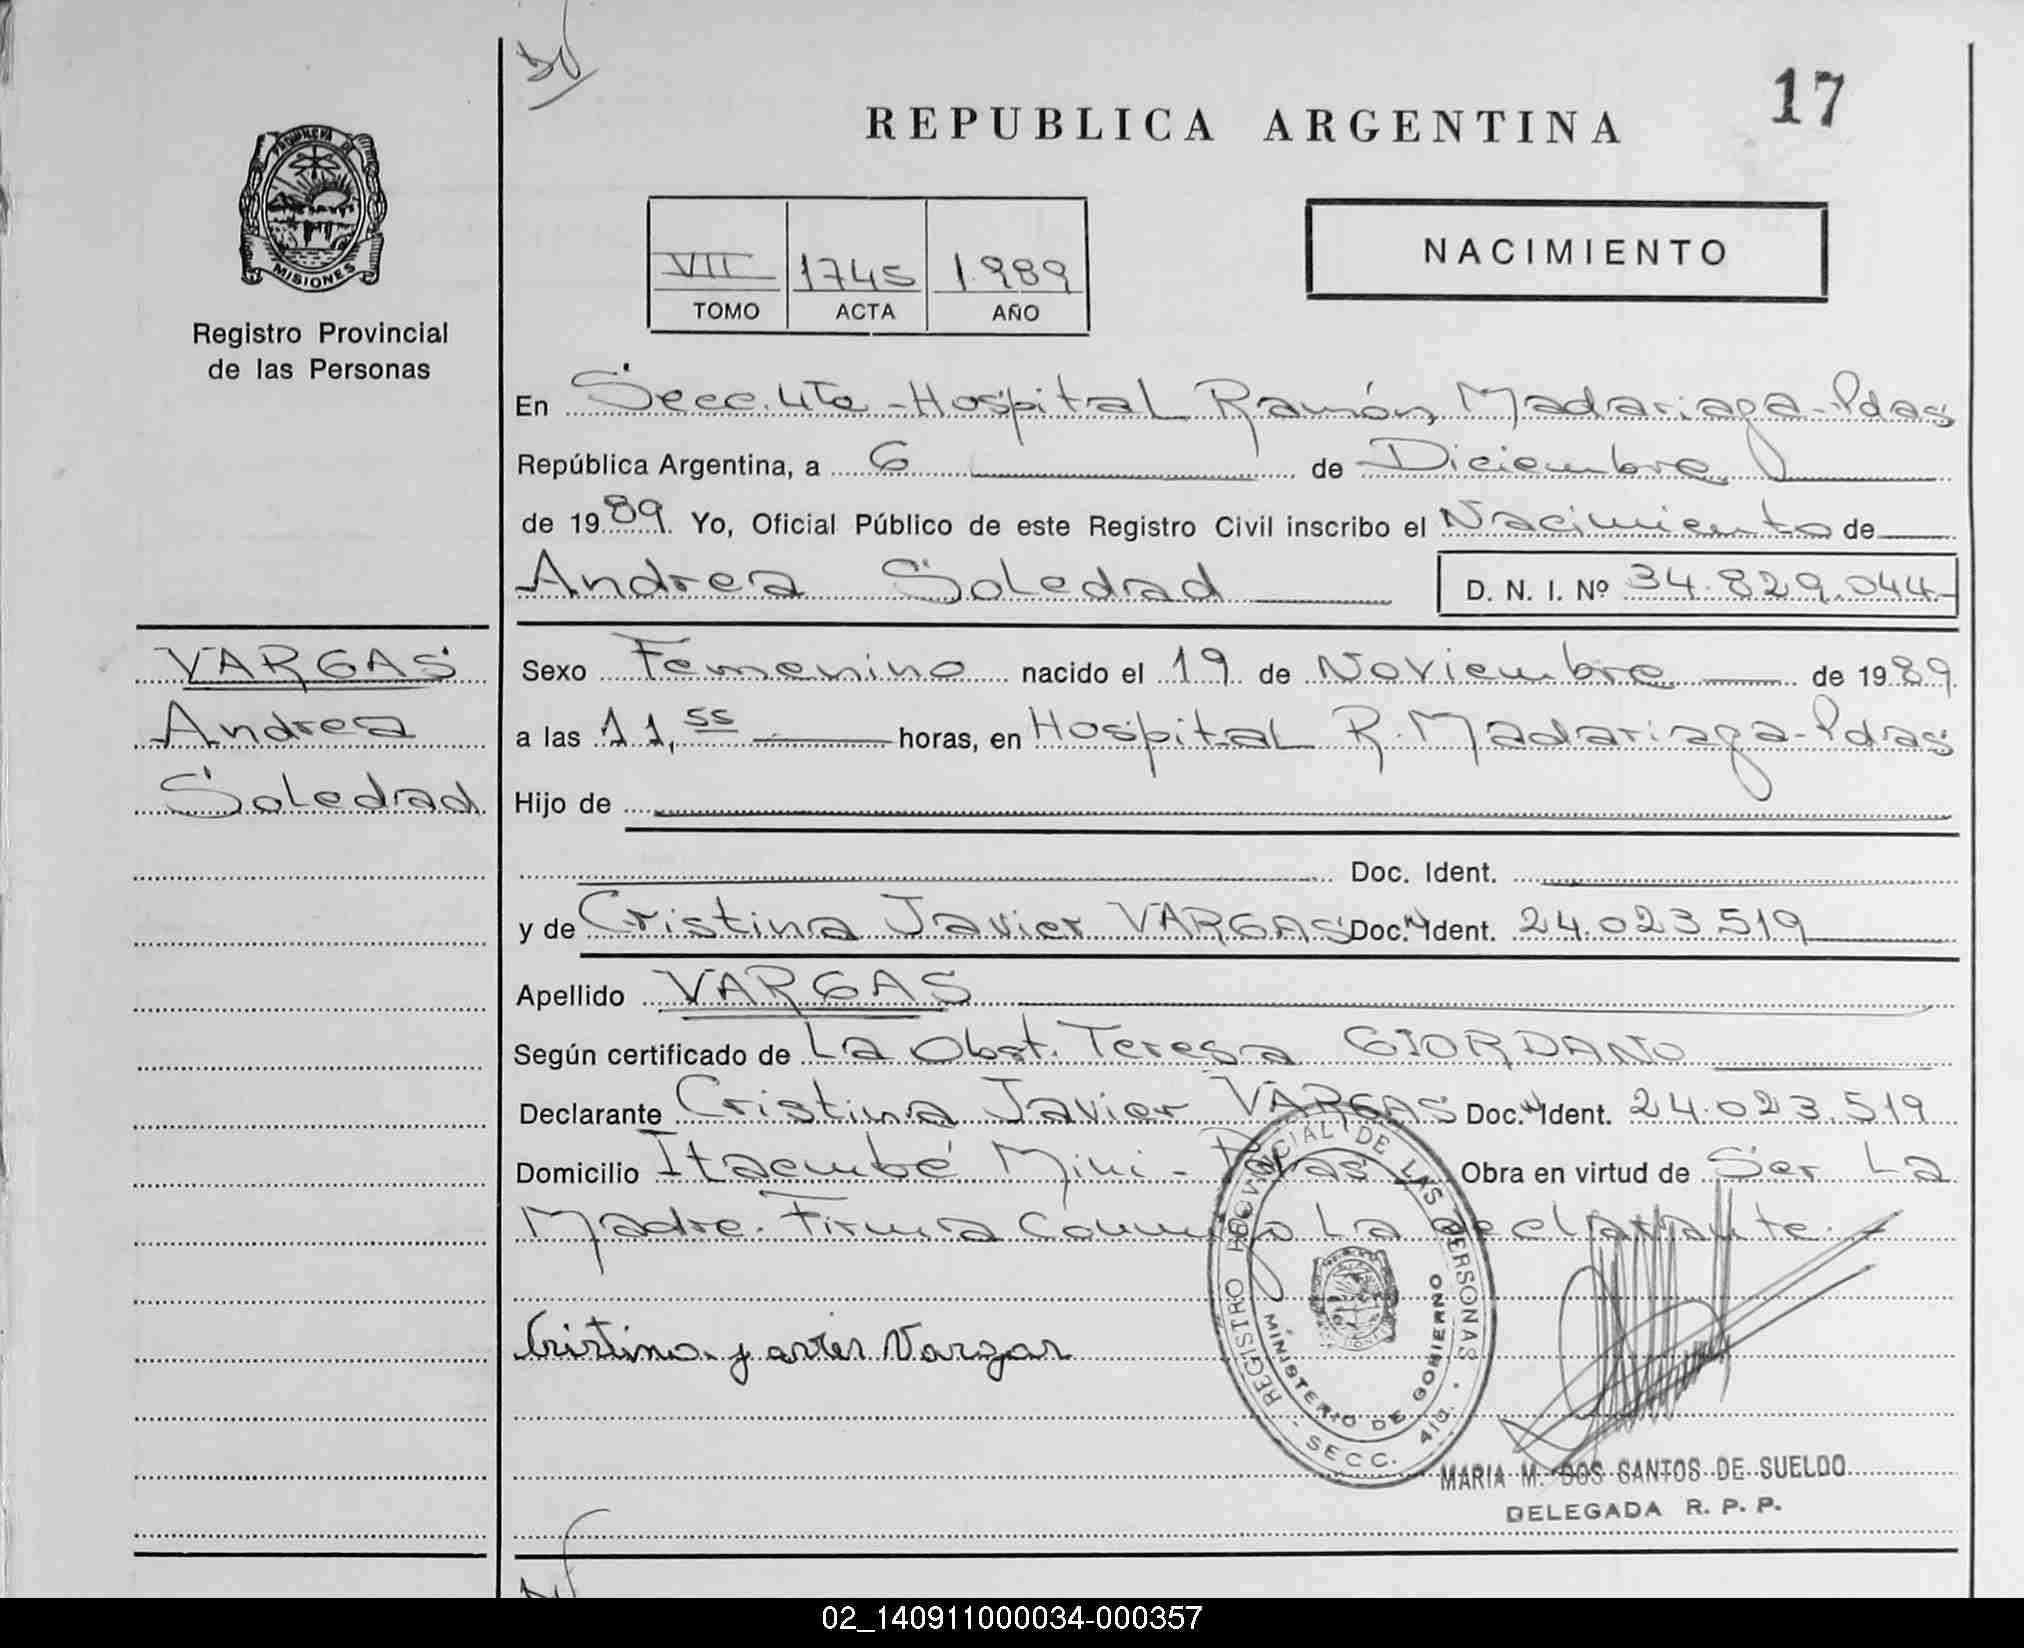 17
REPUBLICA ARGENTINA
PROVINCIA DE
MISIONES
Registro Provincial
de las Personas
NACIMIENTO
VII 1745 1.989
TOMO ACTA AÑO
En Secc. 4ta - Hospital Ramón Madariaga - Pdas
República Argentina, a 6 de Diciembre
de 1989. Yo, Oficial Público de este Registro Civil inscribo el Nacimiento de
Andrea Soledad D. N. I. Nº 34.829.044-
VARGAS
Andrea
Soledad
Sexo Femenino nacido el 19 de Noviembre de 1989
a las 11,55 horas, en Hospital R. Madariaga - Pdas
Hijo de
Doc. Ident.
y de Cristina Javier VARGAS Doc. Ident. 24.023.519
Apellido VARGAS
Según certificado de La Obst. Teresa GIORDANO
Declarante Cristina Javier VARGAS Doc. Ident. 24.023.519
Domicilio Itaembé Mini - Pdas Obra en virtud de Ser La
Madre. Firma Conmigo La Declarante. -
Cristina javier Vargas
REGISTRO PROVINCIAL DE LAS PERSONAS
MINISTERIO DE GOBIERNO
- SECC. 4ta. -
MARIA M. DOS SANTOS DE SUELDO
DELEGADA R. P. P.
02_140911000034-000357